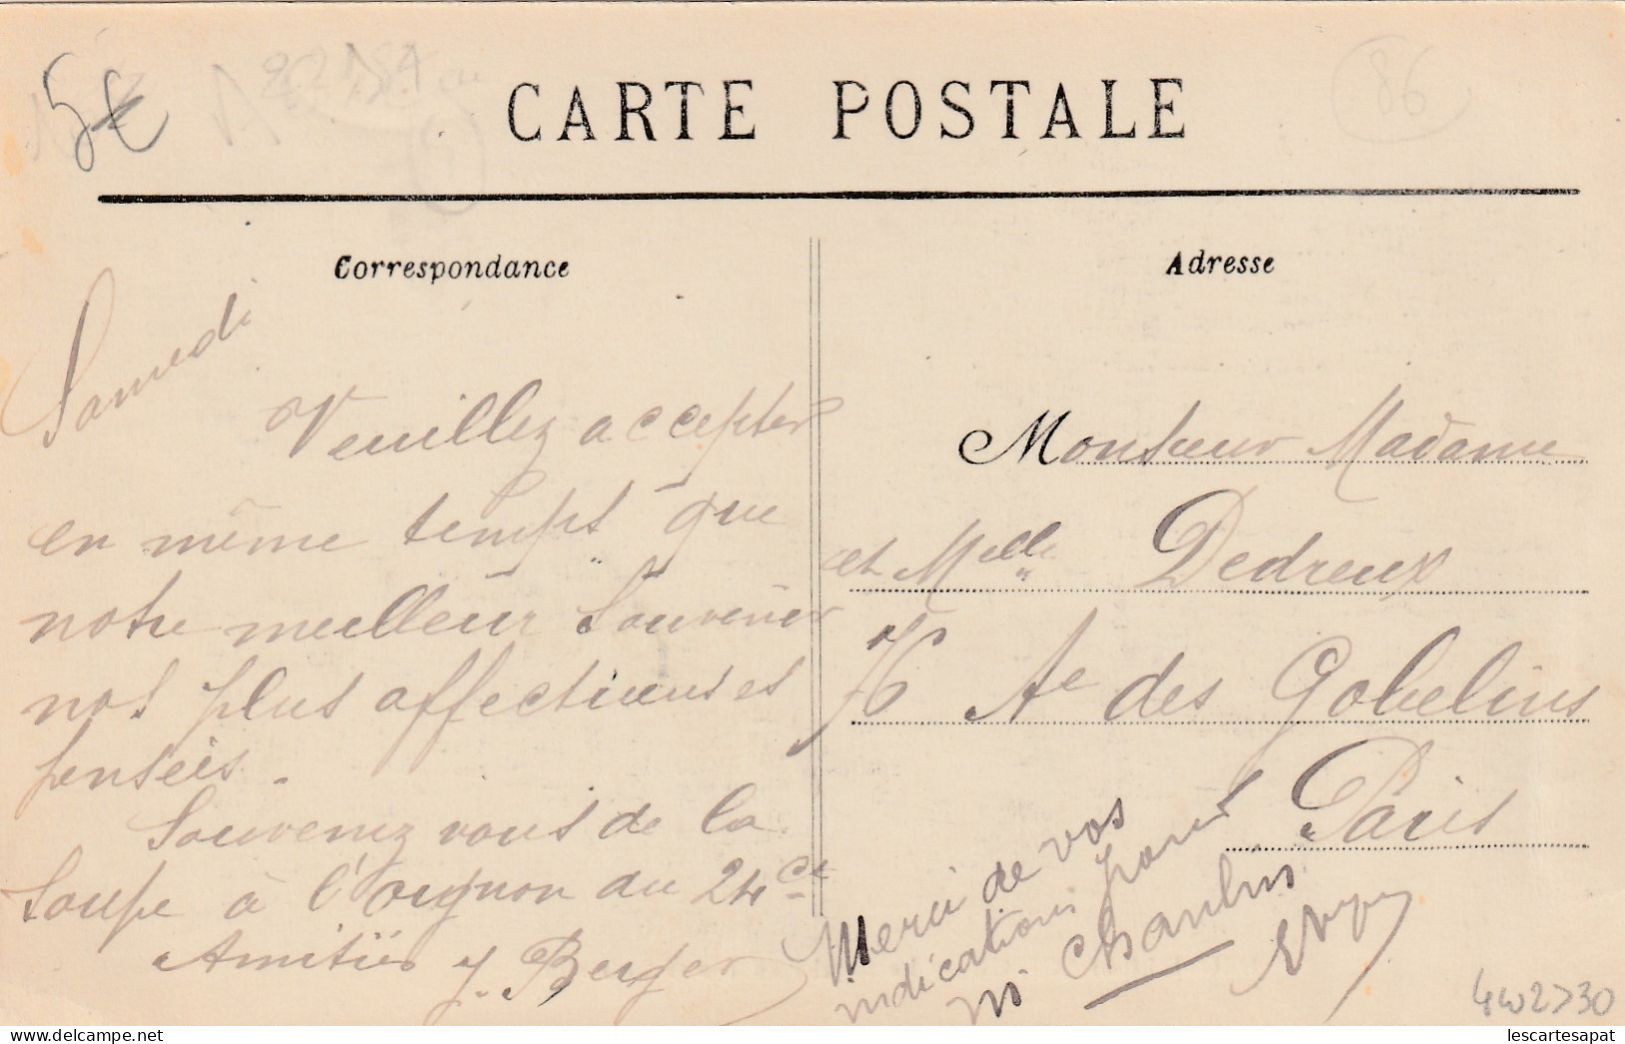 5€
86
CARTE POSTALE
Correspondance
Samedi
Veuillez accepter
en même temps que
notre meilleur Souvenir
nos plus affectueuses
penseés.
Souvenez vous de la
Soupe à l'oignon du 24 ct
Amitiés J. Berger
Adresse
Monsieur Madame
et Melle Dedreux
76 Ae des Gobelins
Paris
Merci de vos
indications pour
Mr Chaulin
4W2>30
lescartesapat